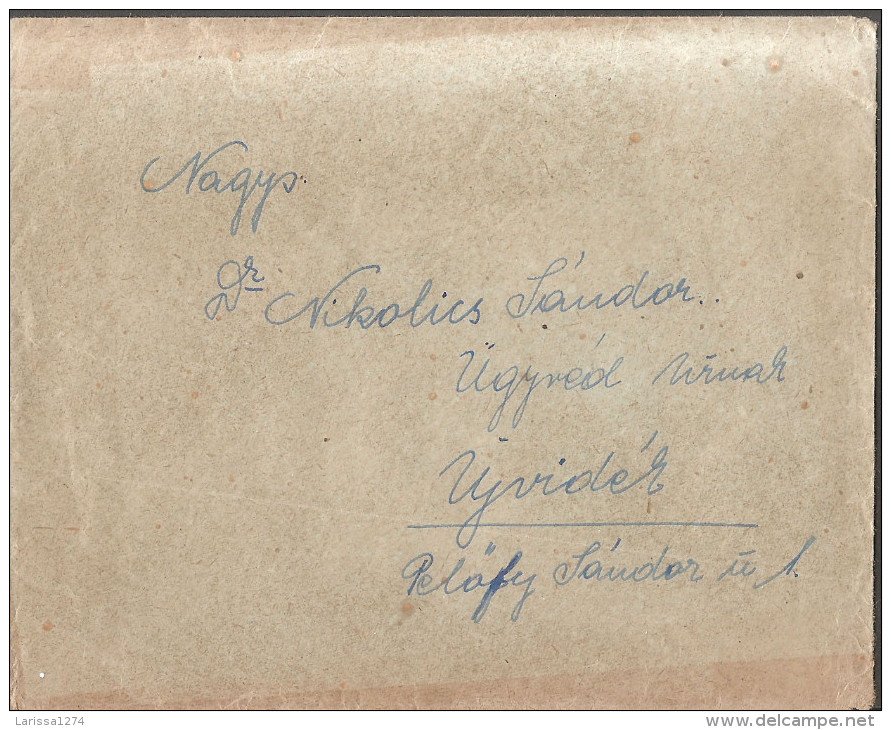 Nagys.
Dr Nikolics Sándor..
Ügyvéd Úrnak
Újvidék
Petőfy Sándor u 1.
Larissa1274
www.delcampe.net